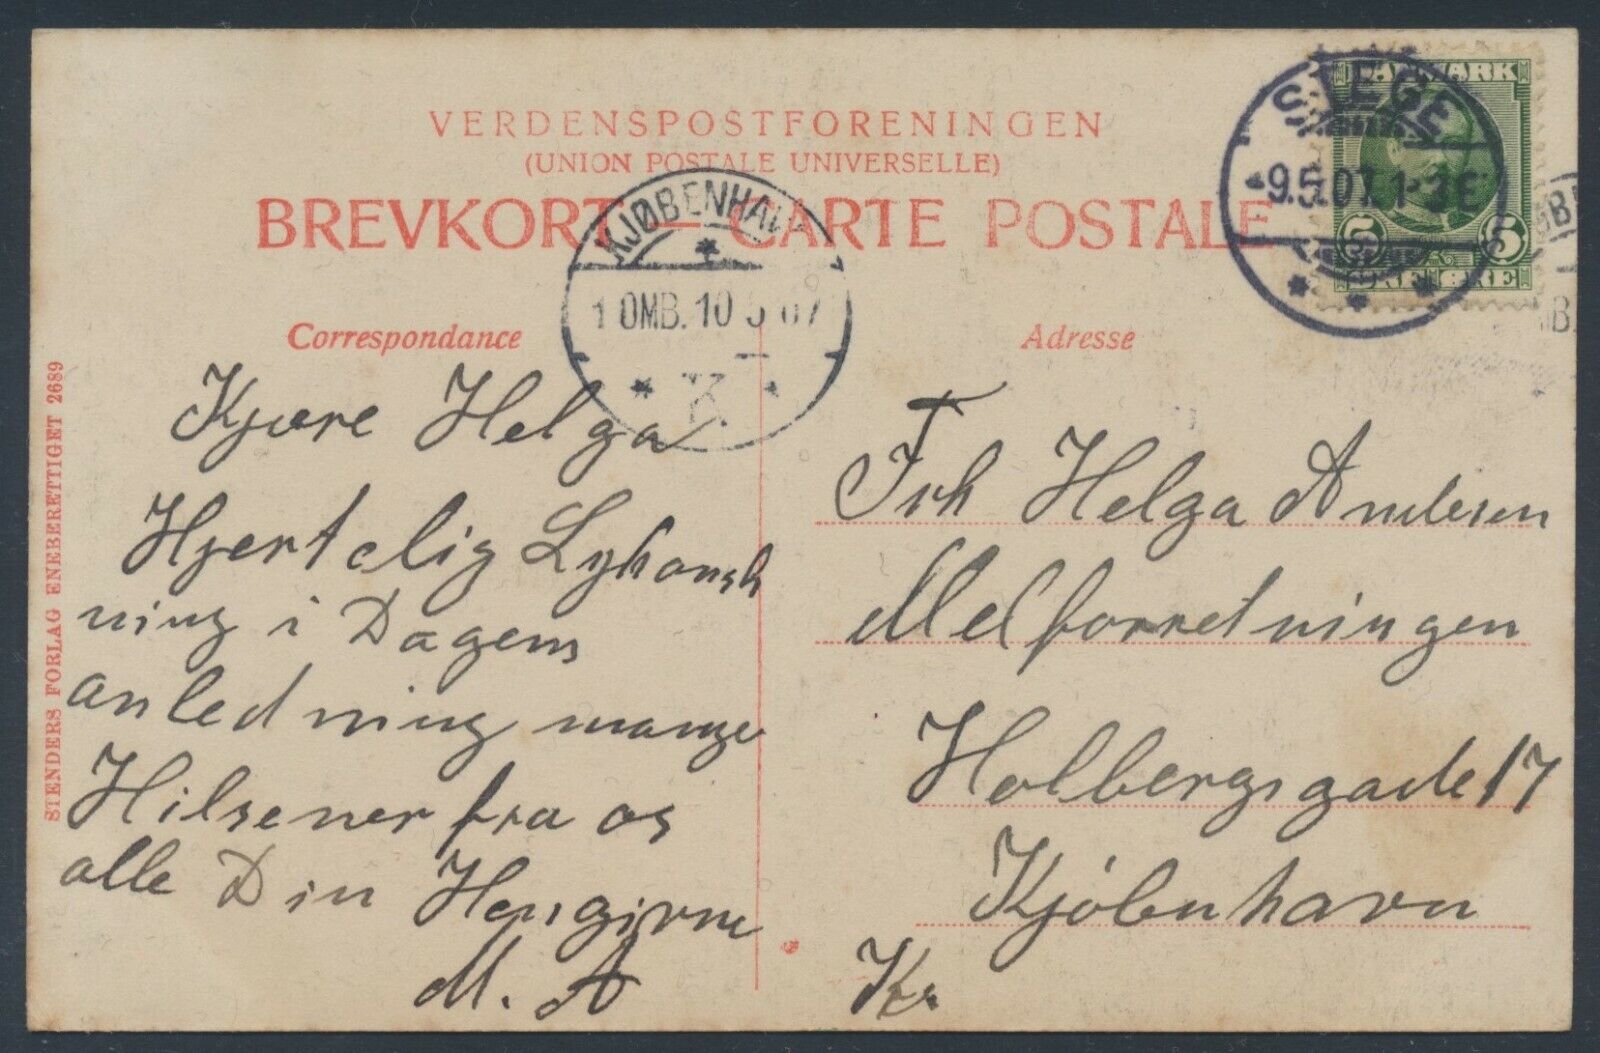 VERDENSPOSTFORENINGEN
(UNION POSTALE UNIVERSELLE)
BREVKORT — CARTE POSTALE
DANMARK
5 5
ØRE ØRE
STEGE
9.5.07. 1-2E
KJØBENHAVN
1 OMB. 10 5 07
K.
Correspondance
Kjære Helga
Hjertelig Lykønsk
ning i Dagens
anledning mange
Hilsener fra os
alle Din Hengivne
M. A
Adresse
Frk Helga Andersen
Melforretningen
Holbergsgade 17
Kjöbenhavn
Kr.
STENDERS FORLAG ENEBERETTIGET 2689